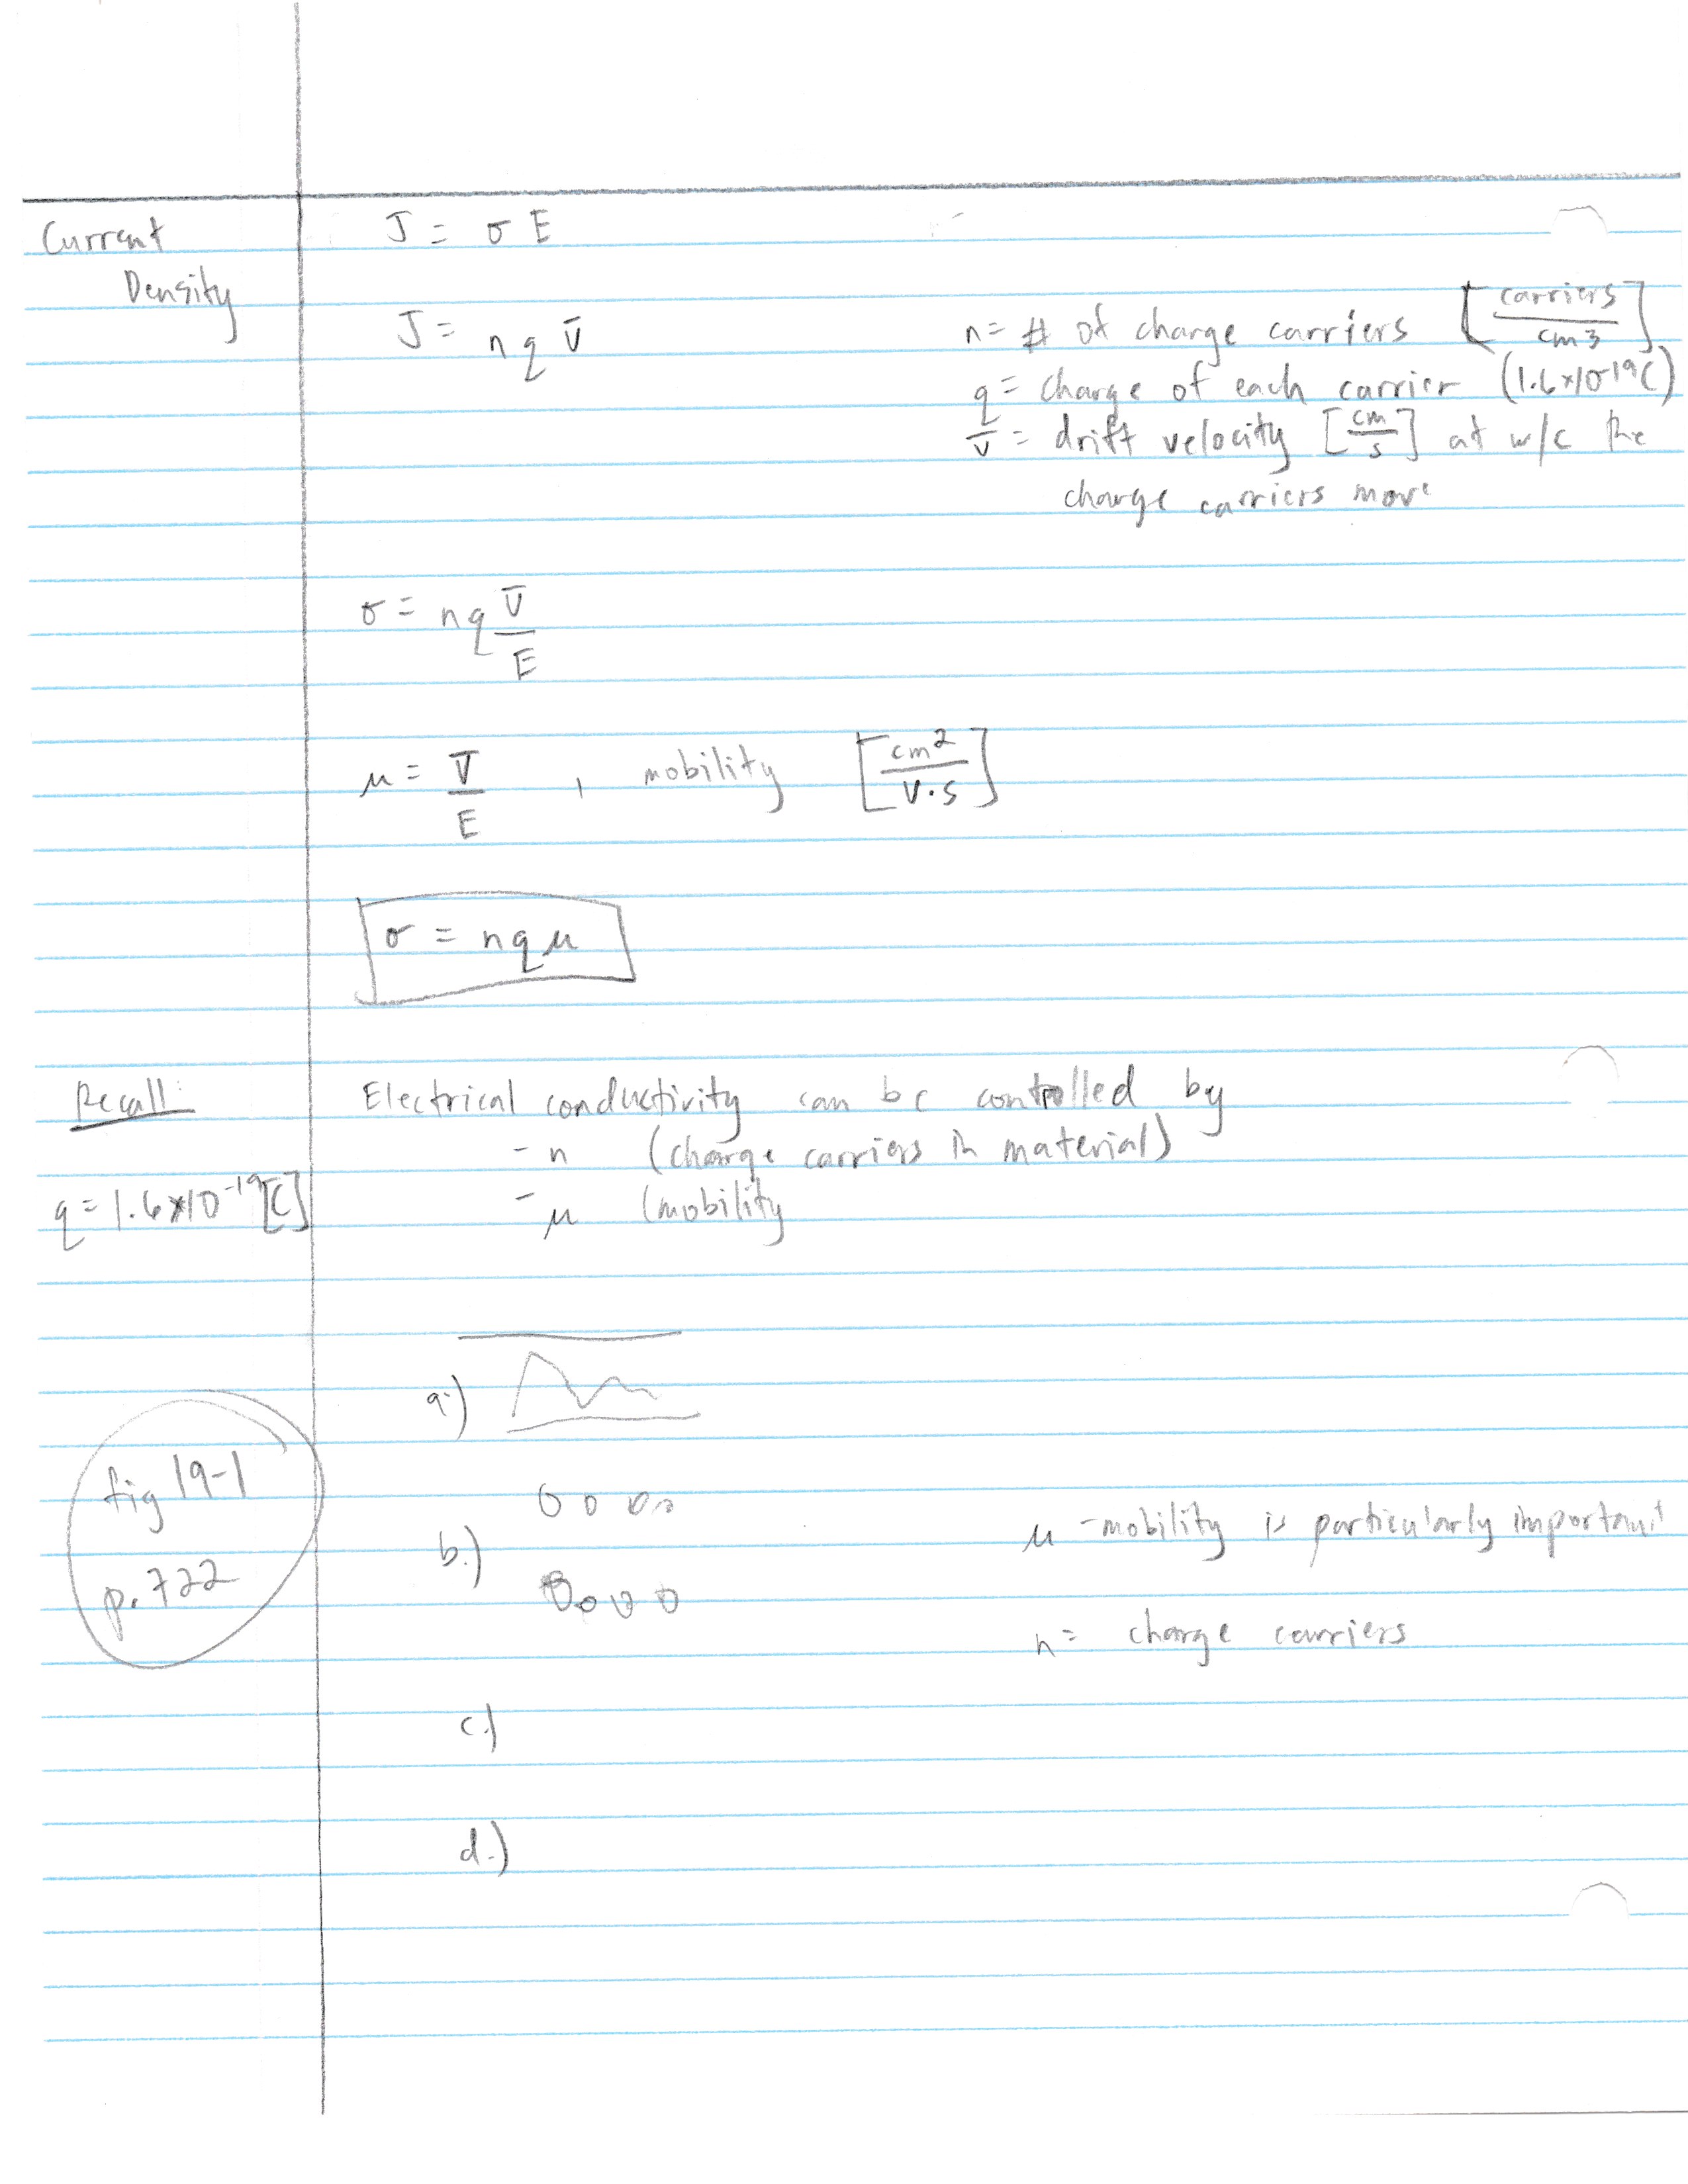 Current
Density
J = σ E
J = n q v̄
n = # of charge carriers [carriers/cm³]
q = charge of each carrier (1.6x10⁻¹⁹C)
v̄ = drift velocity [cm/s] at w/c the
charge carriers move
σ = n q v̄/E
μ = v̄/E , mobility [cm²/V·s]
σ = n q μ
Recall:
Electrical conductivity can be controlled by
- n (charge carriers in material)
q = 1.6x10⁻¹⁹[C]
- μ (mobility
a.)
fig 19-1
p. 722
b.)
μ - mobility is particularly important
n = charge carriers
c.)
d.)